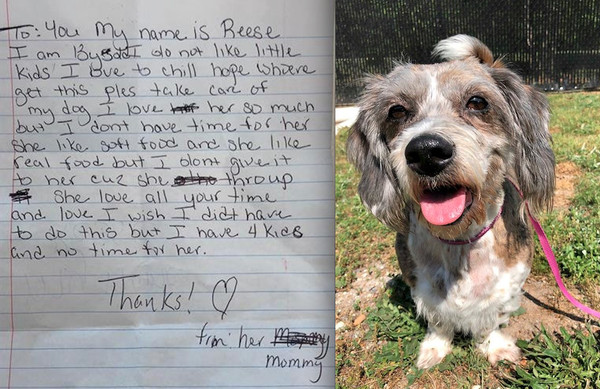 To: You My name is Reese
I am 13ys old I do not like little
kids I love to chill hope whoever
get this ples take care of
my dog I love her so much
but I dont have time for her
She like soft food and she like
real food but I dont give it
to her cuz she throup
She love all your time
and love I wish I didt have
to do this but I have 4 kids
and no time for her.
Thanks! ♡
from: her
mommy